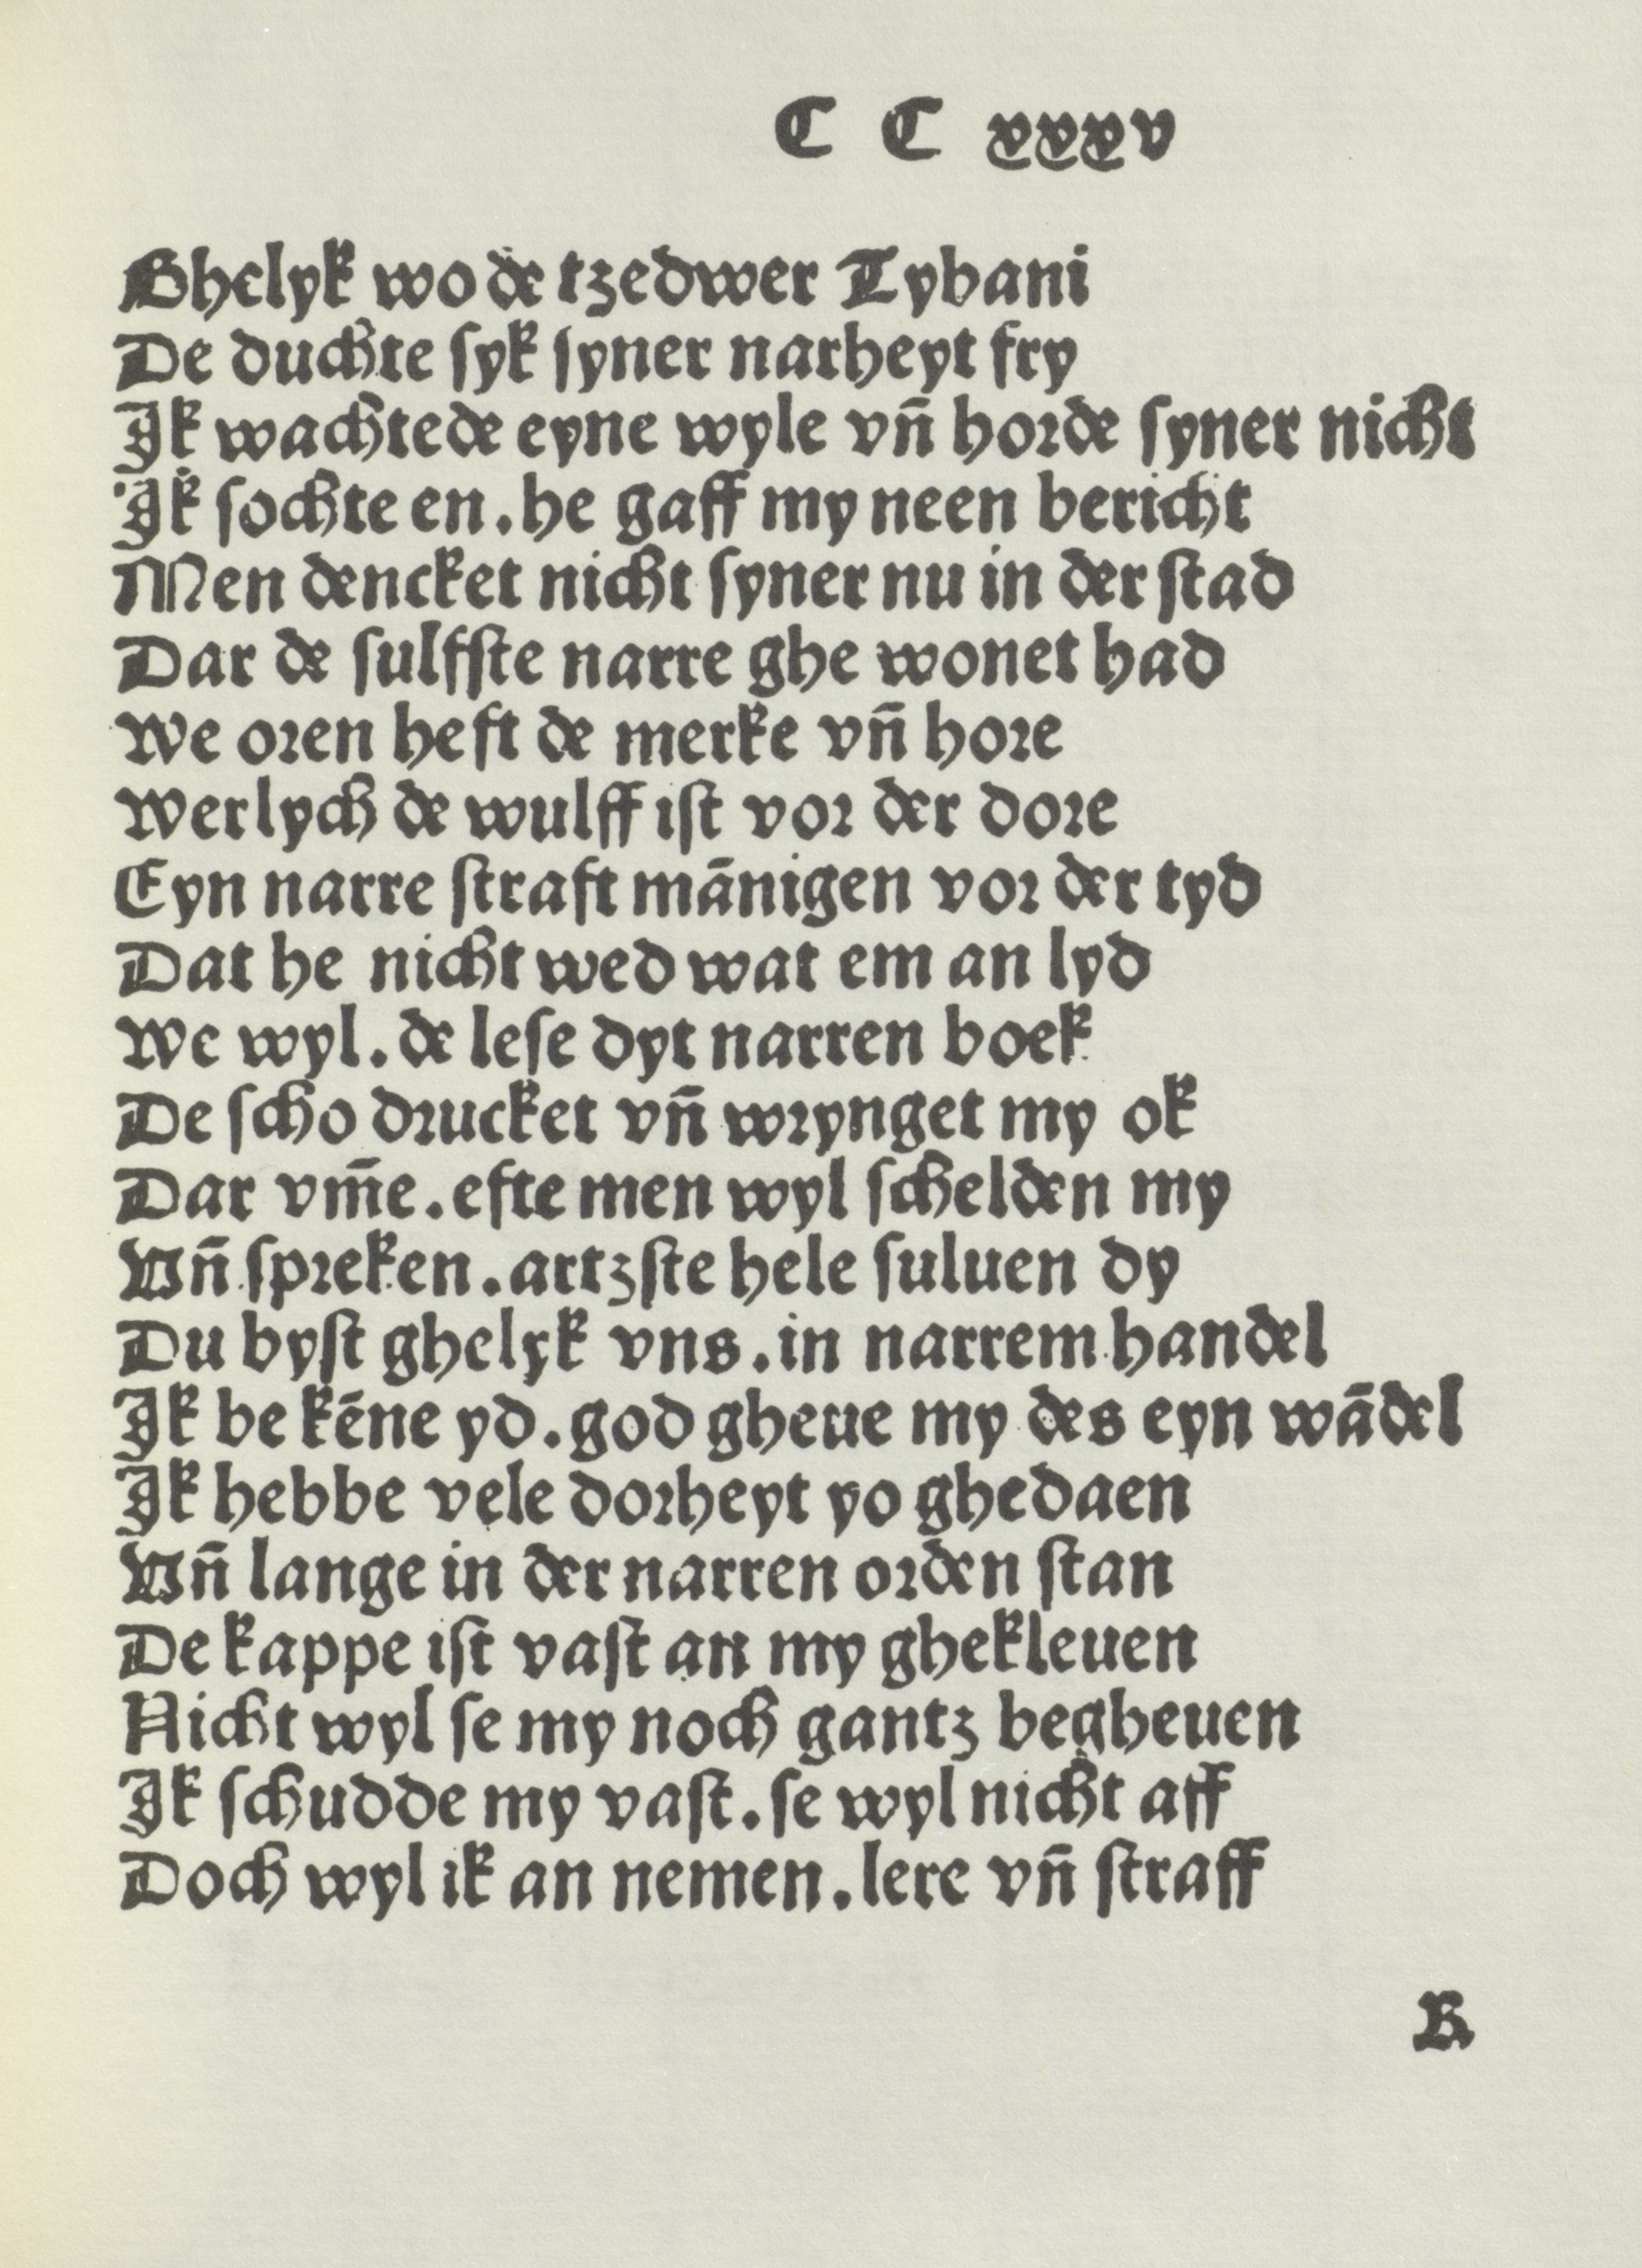 C C xxxv
Ghelyk wo de tzedwer Tybani
De duchte ſyk ſyner narheyt fry
Ik wachtede eyne wyle vn̄ horde ſyner nicht
Ik ſochte en. he gaff my neen bericht
Men dencket nicht ſyner nu in der ſtad
Dar de ſulfſte narre ghe wonet had
We oren heft de merke vn̄ hore
Werlych de wulff iſt vor der dore
Eyn narre ſtraft mānigen vor der tyd
Dat he nicht wed wat em an lyd
We wyl. de leſe dyt narren boek
De ſcho drucket vn̄ wrynget my ok
Dar vm̄e. efte men wyl ſchelden my
Vn̄ ſpreken. artzſte hele ſuluen dy
Du byſt ghelyk vns. in narrem handel
Ik be kēne yd. god gheue my des eyn wādel
Ik hebbe vele dorheyt yo ghedaen
Vn̄ lange in der narren orden ſtan
De kappe iſt vaſt an my ghekleuen
Nicht wyl ſe my noch gantz begheuen
Ik ſchudde my vaſt. ſe wyl nicht aff
Doch wyl ik an nemen. lere vn̄ ſtraff
R